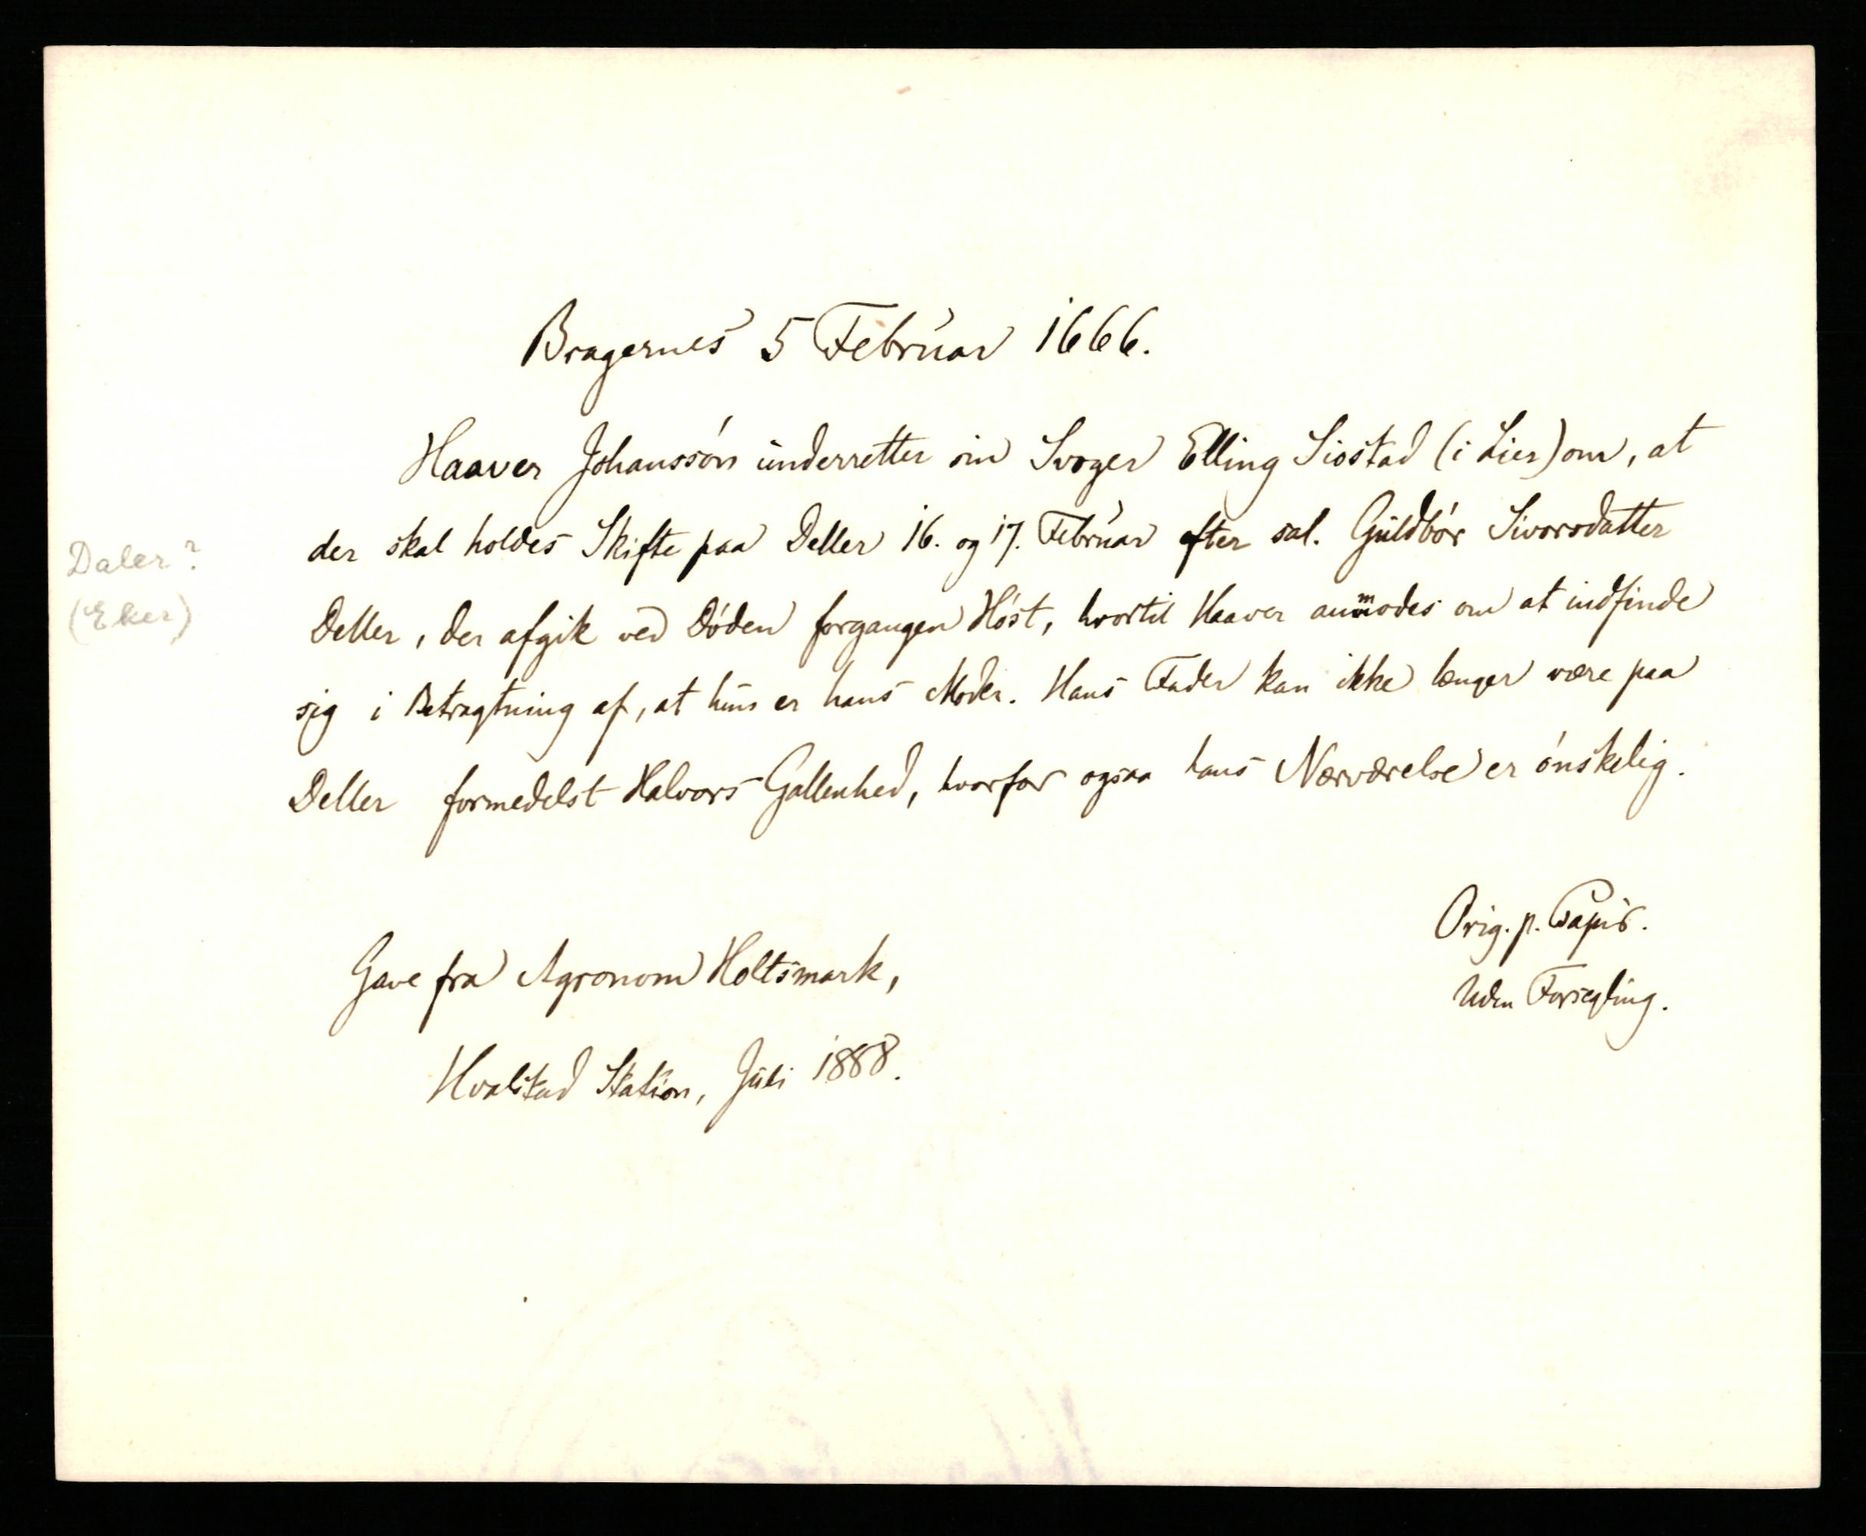 Bragernes 5 Februar 1666.
Haaver Johanssøn underretter sin Svoger Elling Siostad (i Lier) om, at
der skal holdes Skifte paa Deller 16. og 17. Februar efter sal. Guldbør Sivorsdatter
Daler?
(Eker)
Deller, der afgik ved Døden forgangen Høst, hvortil Haaver anmodes om at indfinde
sig i Betragtning af, at hun er hans Moder. Hans Fader kan ikke længer være paa
Deller formedelst Halvors Gallenhed, hvorfor ogsaa hans Nærværelse er ønskelig.
Orig. p. Papir.
Uden Forsegling.
Gave fra Agronom Holtsmark,
Hvalstad Station, Juli 1888.